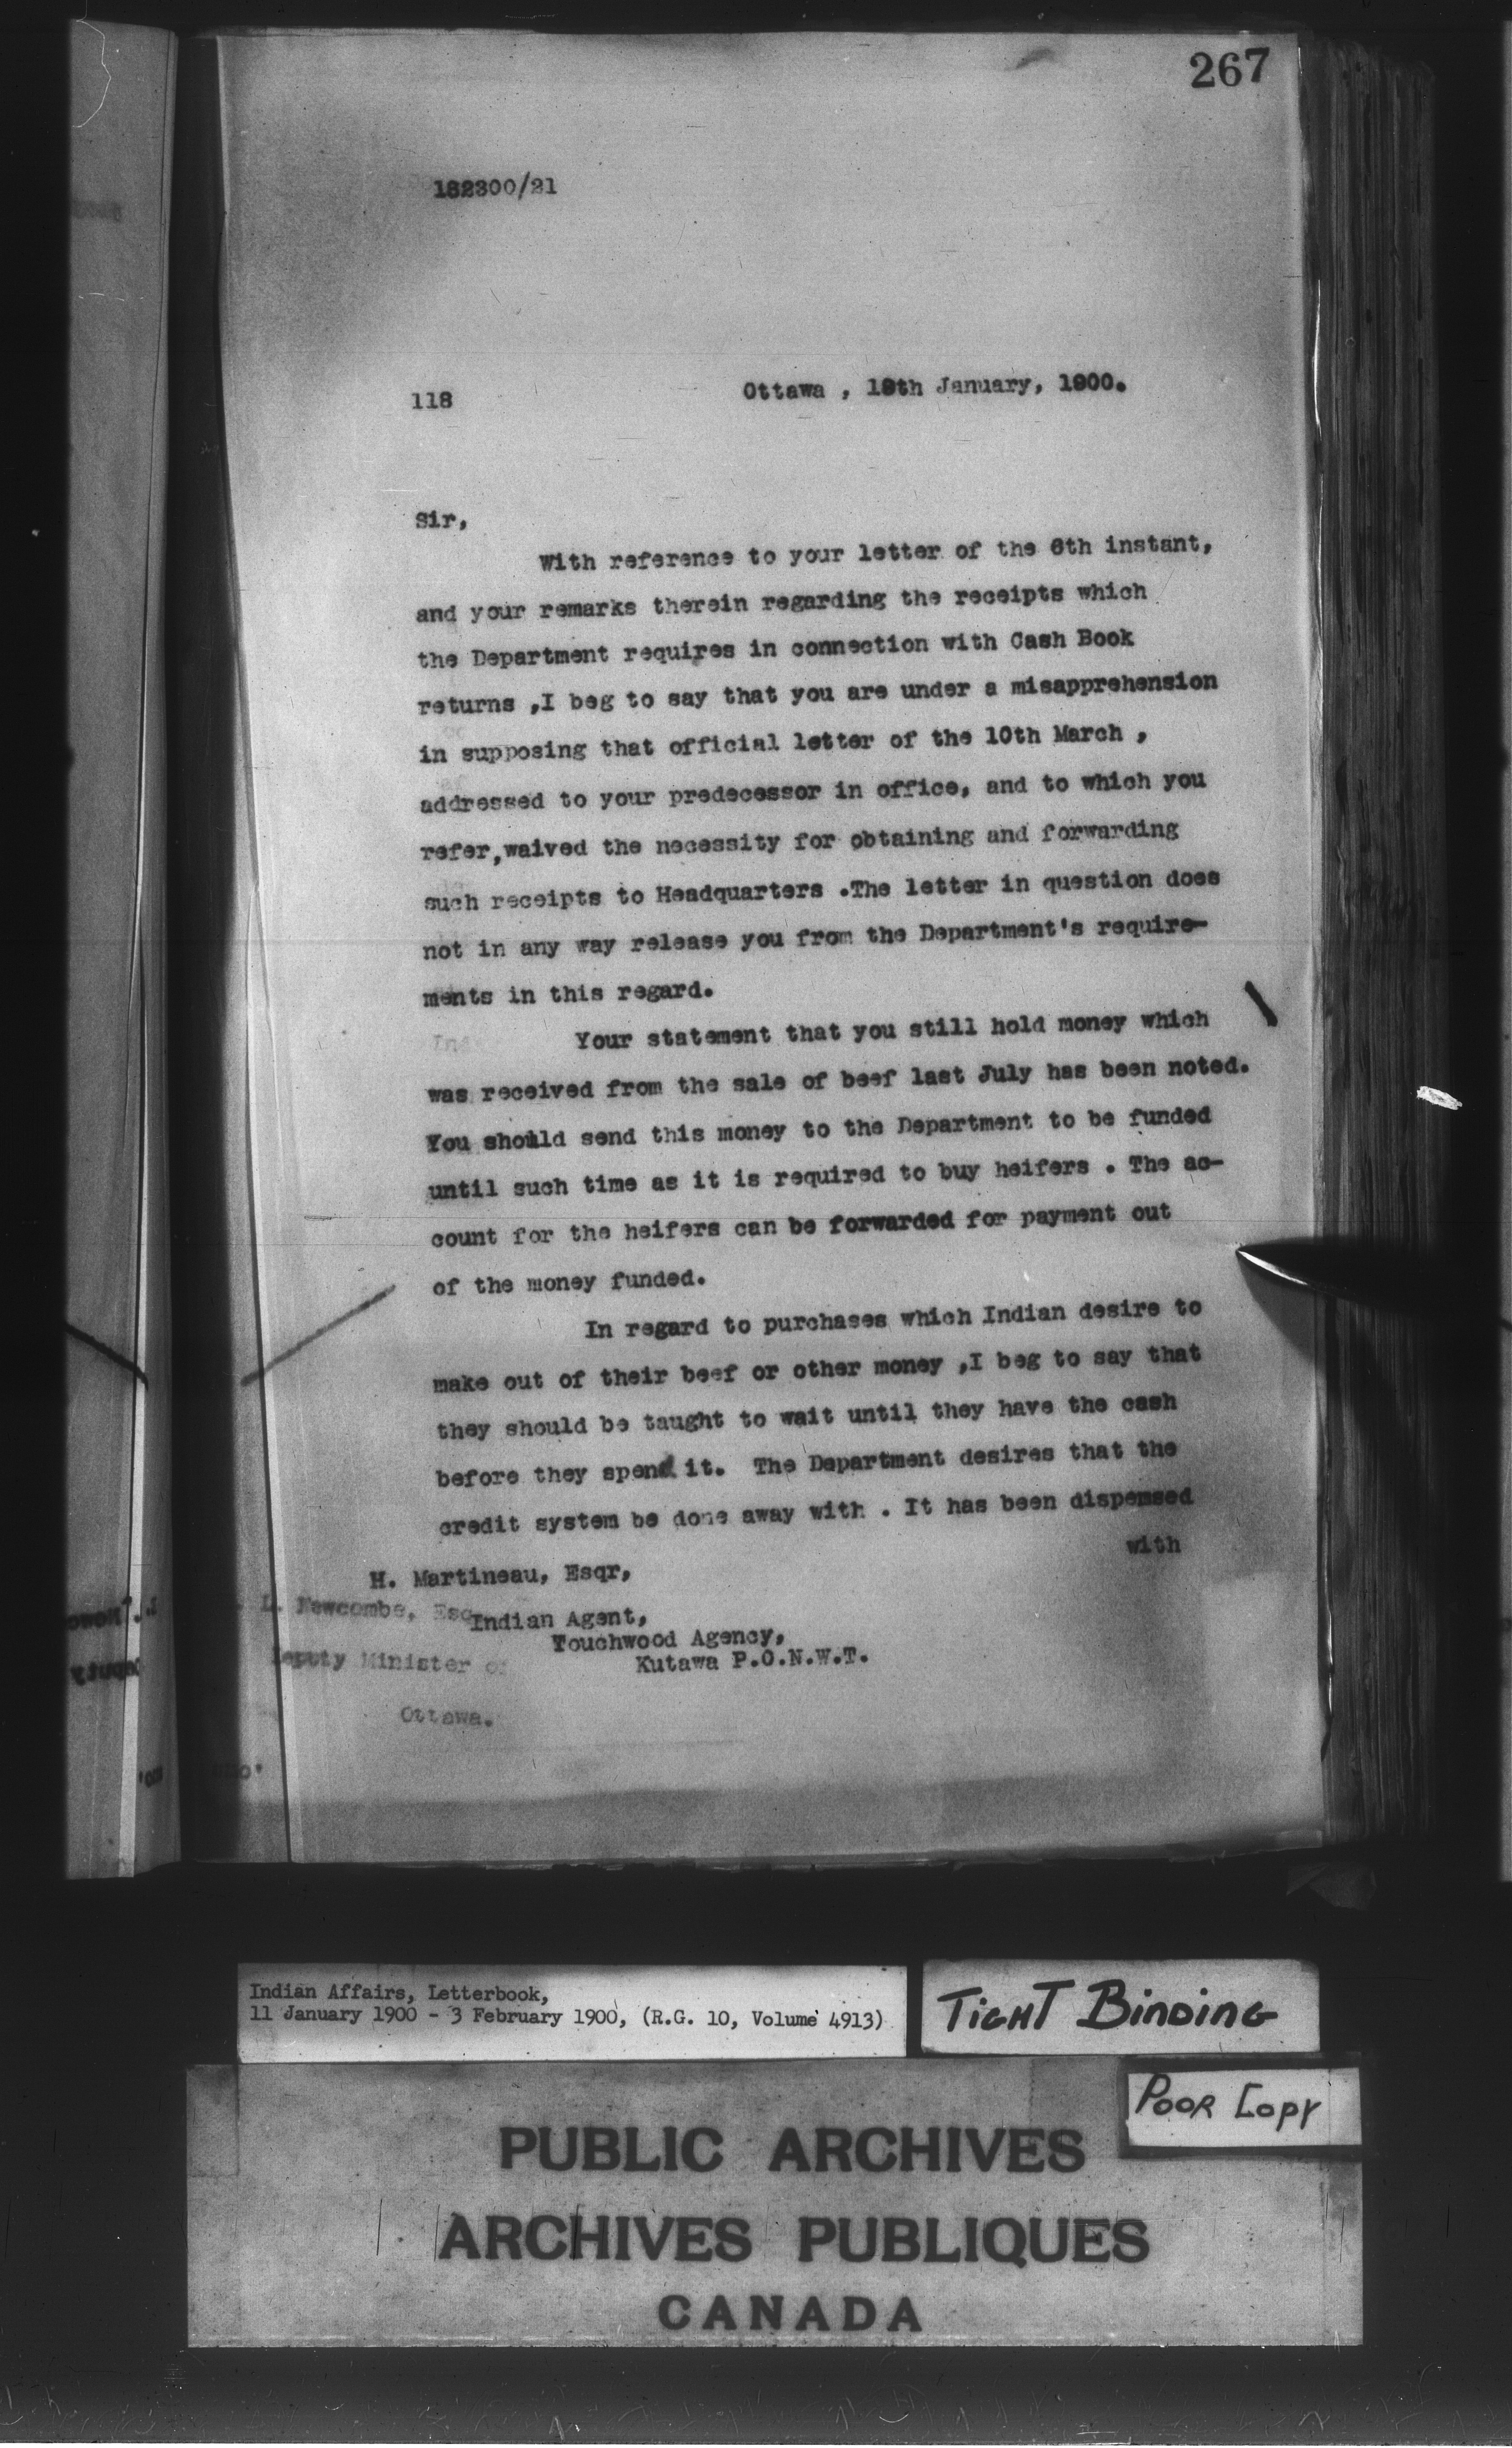 267
182300/21
118
Ottawa , 19th January, 1900.
Sir,
With reference to your letter of the 6th instant,
and your remarks therein regarding the receipts which
the Department requires in connection with Cash Book
returns ,I beg to say that you are under a misapprehension
in supposing that official letter of the 10th March ,
addressed to your predecessor in office, and to which you
refer,waived the necessity for obtaining and forwarding
such receipts to Headquarters .The letter in question does
not in any way release you from the Department's require-
ments in this regard.
Your statement that you still hold money which
was received from the sale of beef last July has been noted.
You should send this money to the Department to be funded
until such time as it is required to buy heifers . The ac-
count for the heifers can be forwarded for payment out
of the money funded.
In regard to purchases which Indian desire to
make out of their beef or other money ,I beg to say that
they should be taught to wait until they have the cash
before they spend it. The Department desires that the
credit system be done away with . It has been dispensed
with
H. Martineau, Esqr,
L. Newcombe, Esq
Indian Agent,
Touchwood Agency,
Deputy Minister of
Kutawa P.O.N.W.T.
Ottawa.
Indian Affairs, Letterbook,
11 January 1900 - 3 February 1900, (R.G. 10, Volume 4913)
TIGHT BINDING
POOR COPY
PUBLIC ARCHIVES
ARCHIVES PUBLIQUES
CANADA